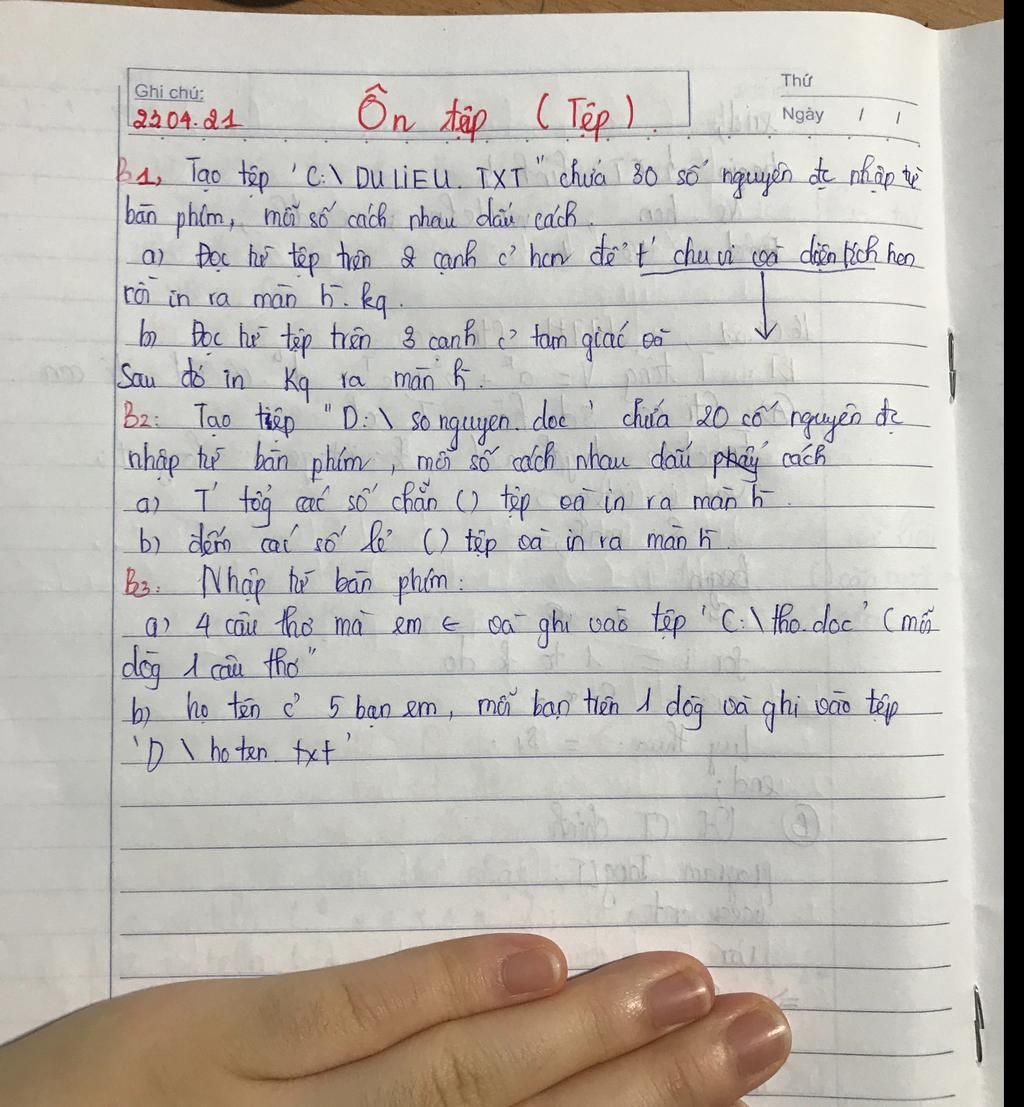 Ghi chú:
22.04.21
Ôn tập (Tệp).
Thứ
Ngày / /
B1, Tạo tệp 'C:\ DULIEU. TXT" chứa 30 số nguyên đc nhập từ
bàn phím, mỗi số cách nhau dấu cách.
a) Đọc từ tệp trên 2 cạnh c' hcn để t' chu vi và diện tích hcn
rồi in ra màn h̄. kq.
b) Đọc từ tệp trên 3 cạnh c' tam giác và
Sau đó in kq ra màn h̄.
B2: Tạo tiệp "D:\ songuyen.doc' chứa 20 số nguyên đc
nhập từ bàn phím, mỗi số cách nhau dấu phẩy cách
a) T' tổg các số chẵn () tệp và in ra màn h̄.
b) đếm các số lẻ () tệp và in ra màn h̄.
B3: Nhập từ bàn phím:
a) 4 câu thơ mà em ∈ và ghi vào tệp 'C:\ tho.doc' (mỗi
dòg 1 câu thơ"
b) họ tên c' 5 bạn em, mỗi bạn trên 1 dòg và ghi vào tệp
'D \ hoten txt'